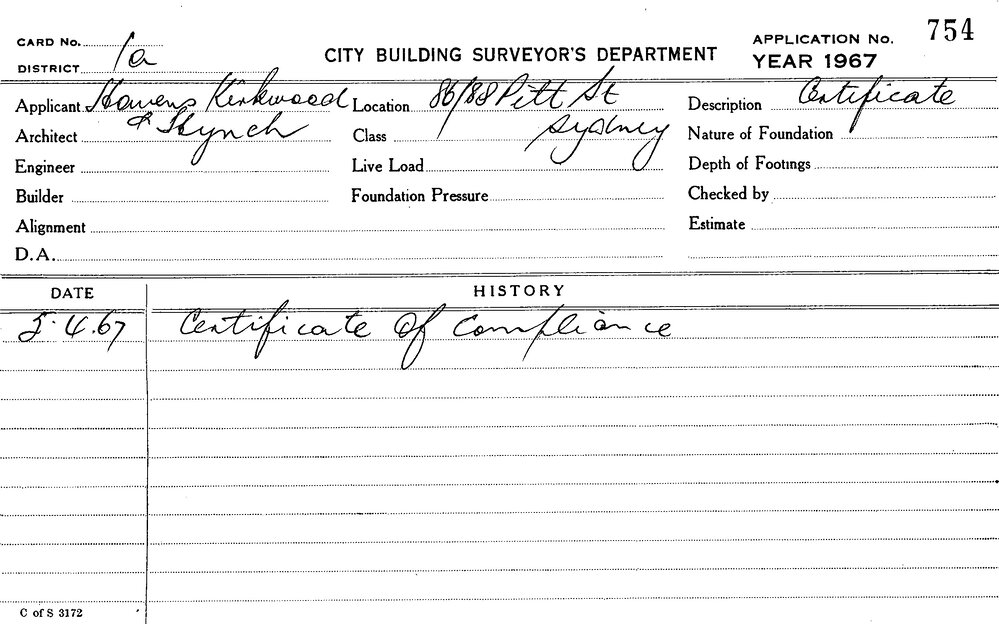 CARD No.
DISTRICT 1a
CITY BUILDING SURVEYOR'S DEPARTMENT
APPLICATION No. 754
YEAR 1967
Applicant Kirkwood
Location 86/88 Pitt St
Sydney
Description Certificate
Architect
Class
Nature of Foundation
Engineer
Live Load
Depth of Footings
Builder
Foundation Pressure
Checked by
Alignment
Estimate
D.A.
DATE HISTORY
5.4.67 Certificate of compliance
C of S 3172